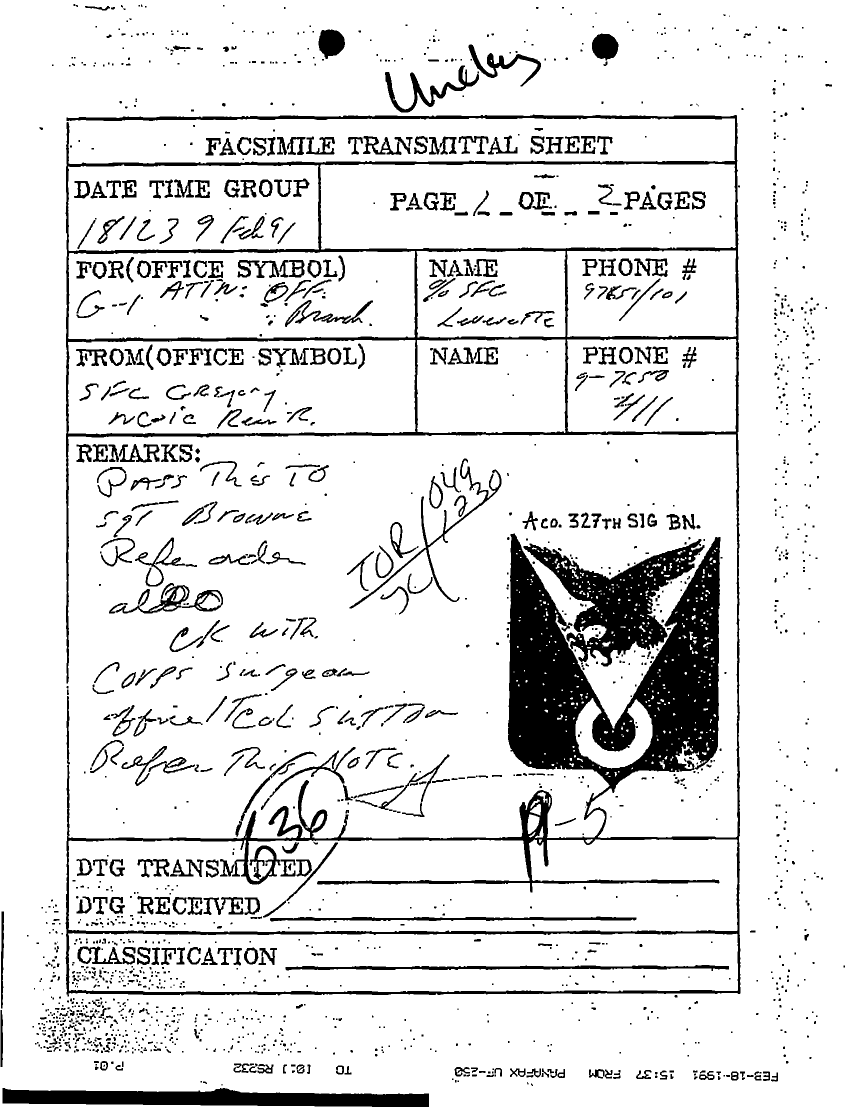 Unclas
FACSIMILE TRANSMITTAL SHEET
DATE TIME GROUP
181239 Feb 91
PAGE 1 OF 2 PAGES
FOR(OFFICE SYMBOL)
G-1 ATTN: OFF.
Branch.
NAME
% SFC
Leverette
PHONE #
97651/101
FROM(OFFICE SYMBOL)
SFC Gregory
NCOIC
NAME
PHONE #
9-7650
REMARKS:
Pass This TO
Sgt Browne
Refer order
also
CK with
Corps Surgeon
office/ Col Sutton
Refer This Note.
TOR/049
1230
A CO. 327TH SIG BN.
636
DTG TRANSMITTED
DTG RECEIVED
CLASSIFICATION
FEB-18-1991 15:37 FROM PANAFAX UF-250 TO [0:] RS232 P.01